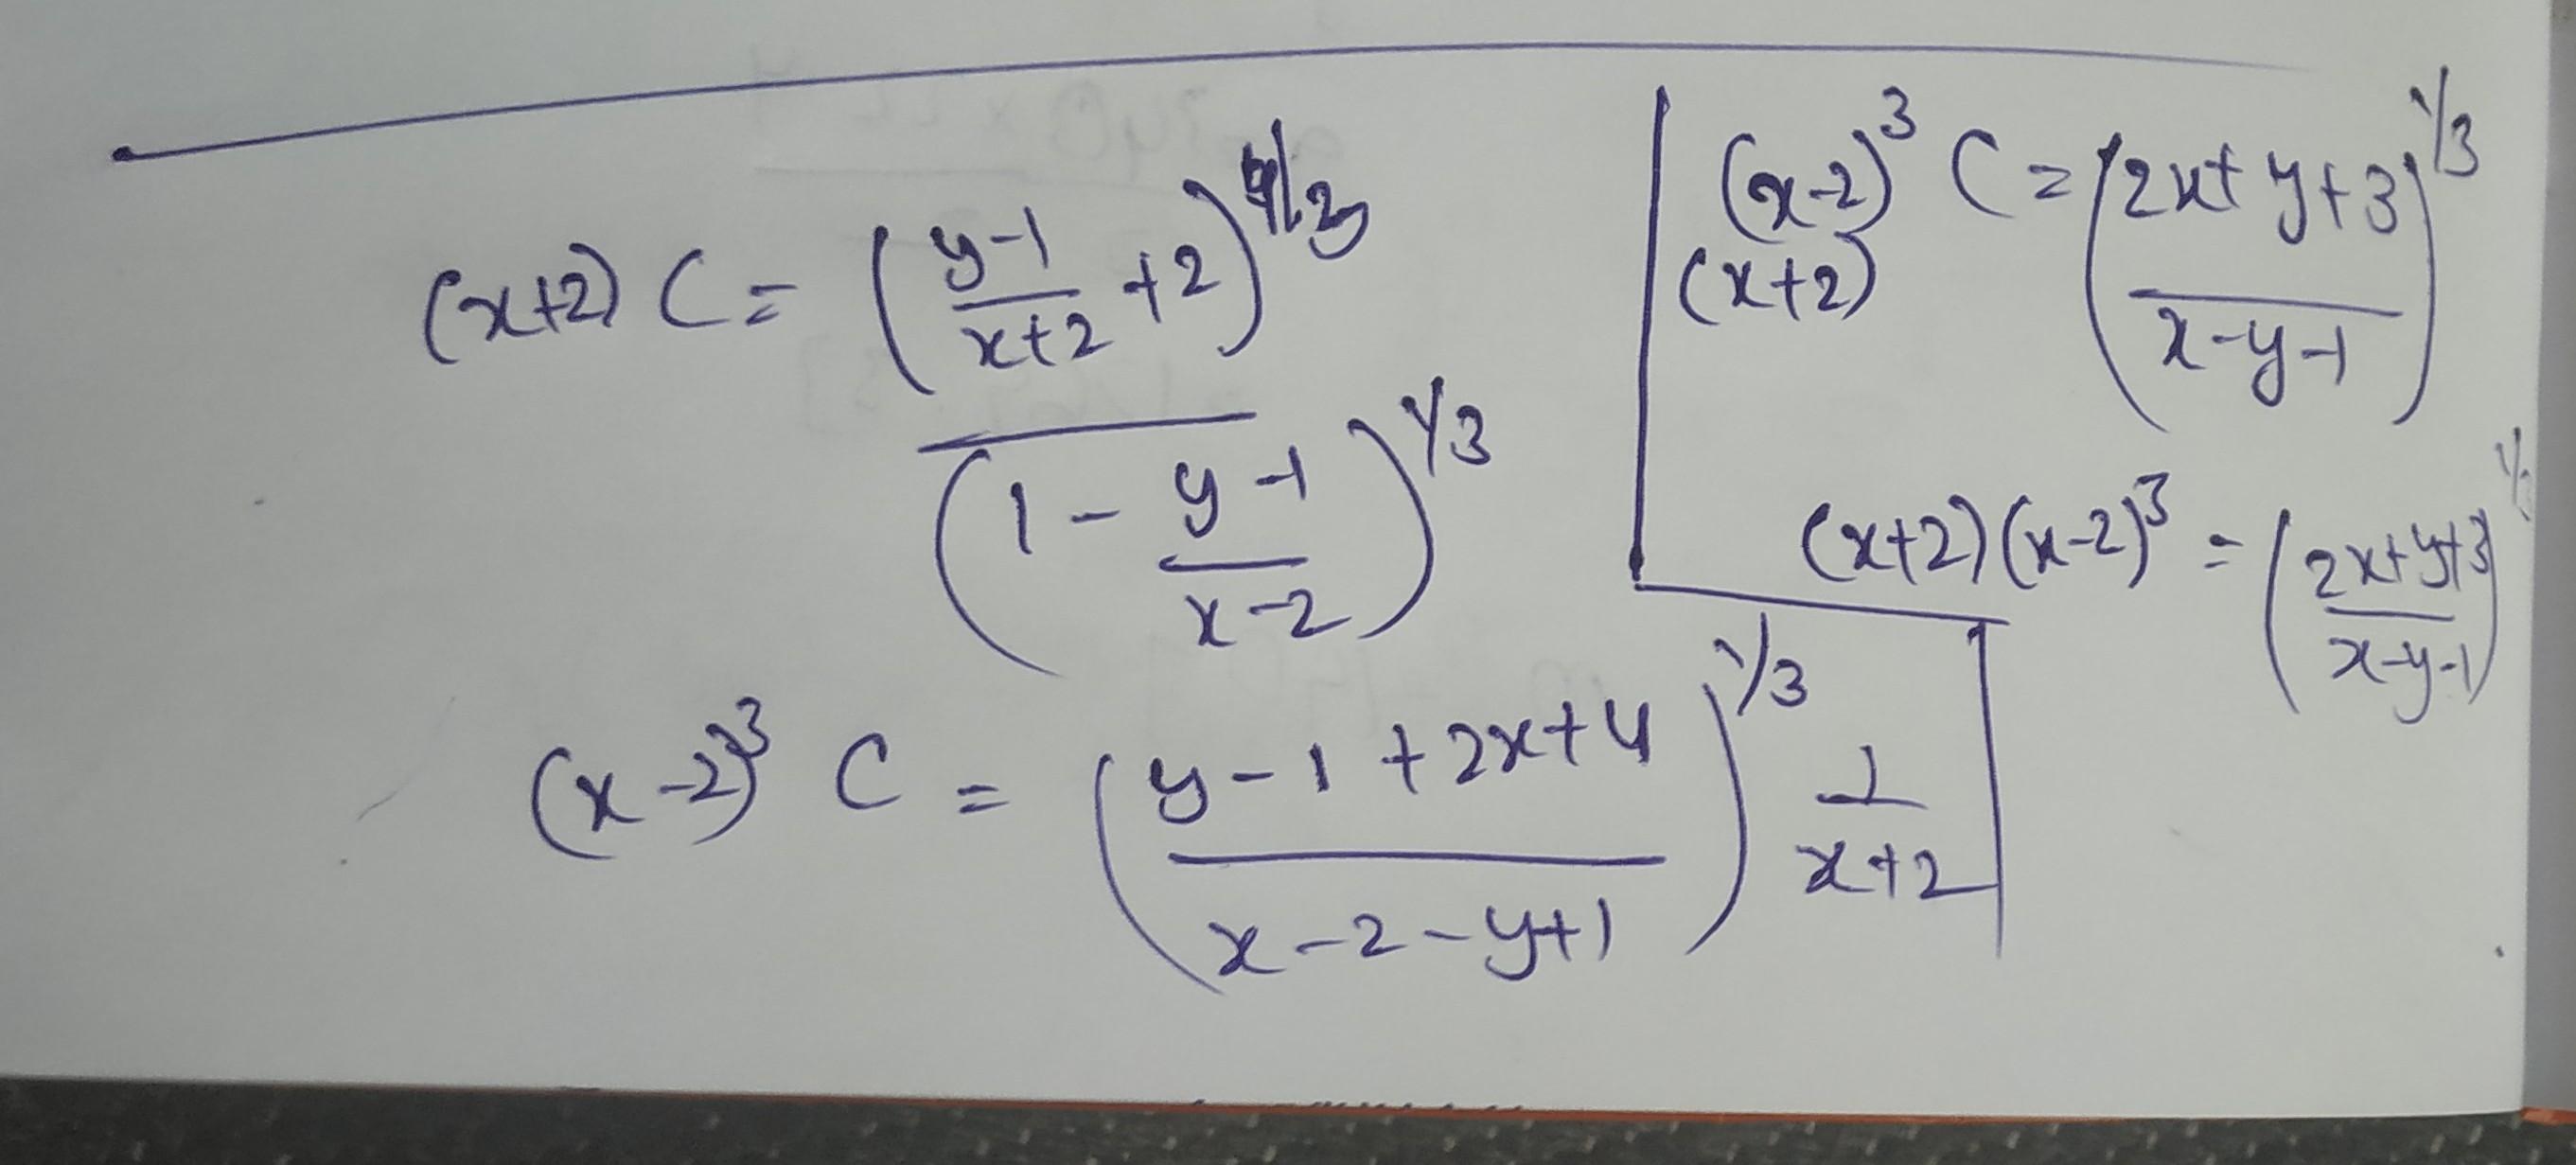 (x+2) C = (y-1/x+2 +2)^1/3
(1 - y-1/x-2)^1/3
(x-2)^3 C = (y-1+2x+4/x-2-y+1)^1/3 1/x+2
(x-2)^3 (x+2) C = (2x+y+3/x-y-1)^1/3
(x+2)(x-2)^3 = (2x+y+3/x-y-1)